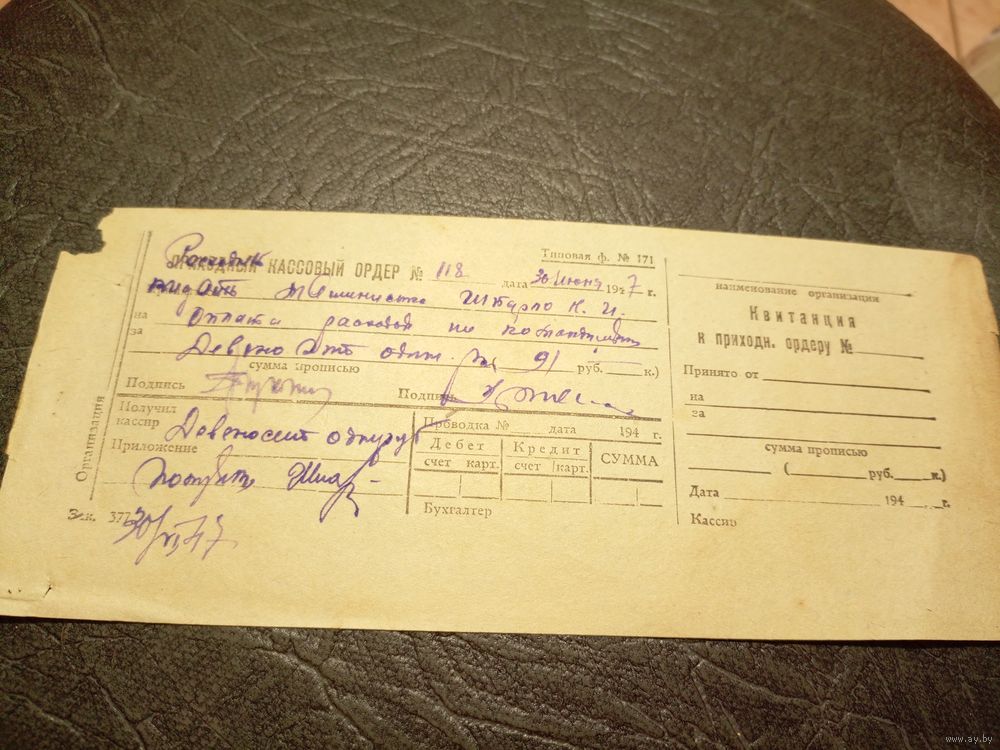 Расходный
ПРИХОДНЫЙ КАССОВЫЙ ОРДЕР № 118
Типовая ф. № 171
дата 30 июня 1947 г.
выдать Штарло К. И.
на Оплата расходов по
за
Девяносто один 91 руб. к.)
сумма прописью
Подпись
Подпись
Организация
Получил
кассир Девяносто один руб
Приложение
Зак. 377
30/VI 47
Проводка № дата 194 г.
Дебет Кредит СУММА
счет карт. счет карт.
Бухгалтер
наименование организации
Квитанция
к приходн. ордеру №
Принято от
на
за
сумма прописью
( руб. к.)
Дата 194 г.
Кассир
www.ay.by